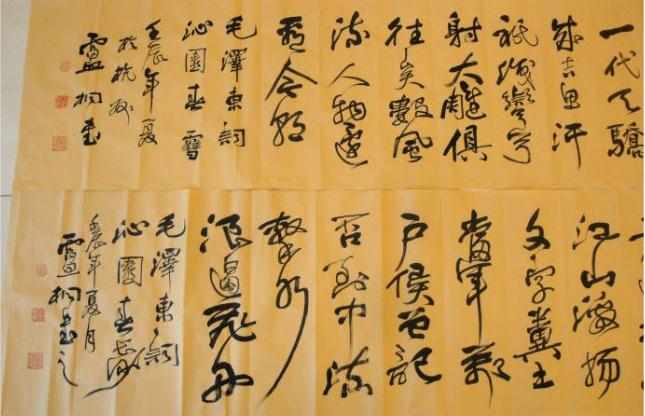 一代天驕
成吉思汗
祇識彎弓
射大雕俱
往矣數風
流人物還
看今朝
毛澤東詞
沁園春雪
壬辰年夏
於杭州
盧桐書
江山激揚
文字糞土
當年萬
戶侯曾記
否到中流
擊水
浪遏飛舟
毛澤東詞
沁園春長沙
壬辰年夏月
盧桐書之